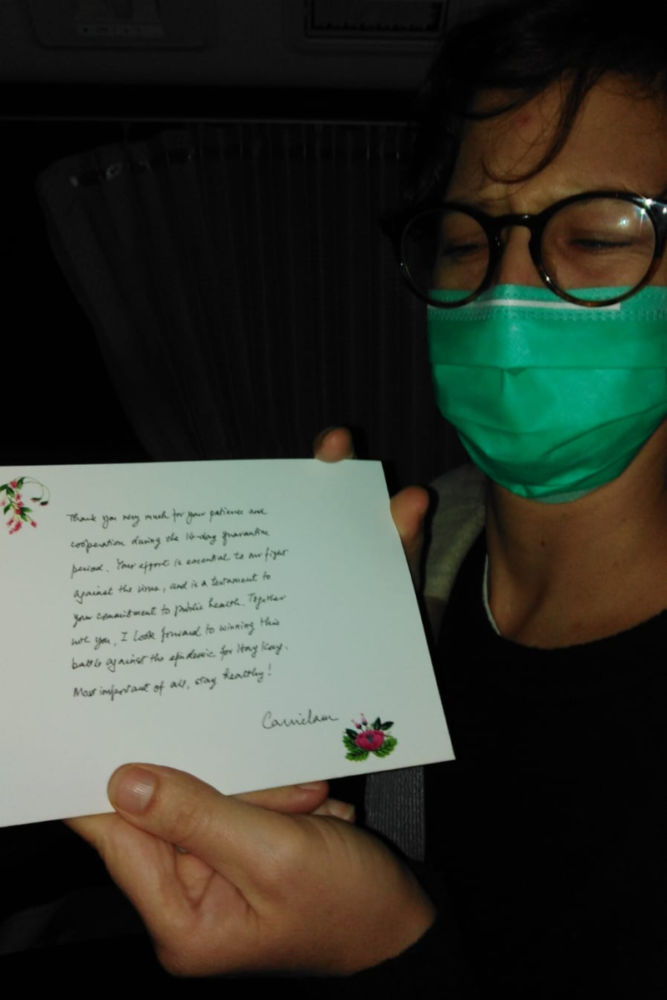 Thank you very much for your patience and
cooperation during the 14-day quarantine
period. Your effort is essential to our fight
against the virus, and is a testament to
your commitment to public health. Together
with you, I look forward to winning this
battle against the epidemic for Hong Kong.
Most important of all, stay healthy!
Carrie Lam